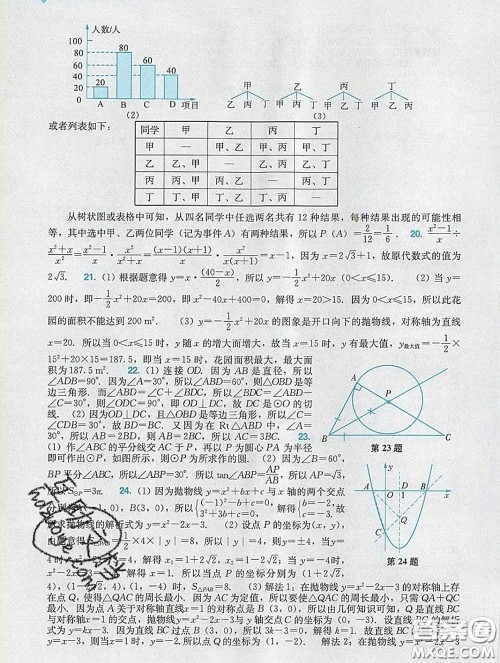 人数/人
100
80
60
40
20
0
20
80
60
40
A B C D 项目
(2)
甲 乙 丙 丁
乙 丙 丁 甲 丙 丁 甲 乙 丁 甲 乙 丙
(3)
或者列表如下：
同学 甲 乙 丙 丁
甲 — 甲、乙 甲、丙 甲、丁
乙 乙、甲 — 乙、丙 乙、丁
丙 丙、甲 丙、乙 — 丙、丁
丁 丁、甲 丁、乙 丁、丙 —
从树状图或表格中可知，从四名同学中任选两名共有 12 种结果，每种结果出现的可能性相
等，其中选中甲、乙两位同学（记为事件 A）有两种结果，所以 P（A）=2/12=1/6. 20. x²-1/x÷
x²+x/x²=x²-1/x·x²/x²+x=(x-1)(x+1)/x·x²/x(x+1)=x-1，因为 x=2√3+1，故原代数式的值为
2√3. 21.（1）根据题意得 y=x·(40-x)/2，所以 y=-1/2x²+20x（0<x≤15）. （2）当 y=
200 时，即-1/2x²+20x=200，即 x²-40x+400=0，解得 x=20>15. 因为 0<x≤15，所以此花
园的面积不能达到 200 m². （3）y=-1/2x²+20x 的图象是开口向下的抛物线，对称轴为直线
x=20. 所以当 0<x≤15 时，y 随 x 的增大而增大，故当 x=15 时，y 有最大值，y最大值=-1/2×
15²+20×15=187.5，即当 x=15 时，花园面积最大，最大面
积为 187.5 m². 22.（1）连接 OD. 因为 AB 是直径，所以
∠ADB=90°. 因为∠A=30°，所以∠ABD=60°，则△OBD 是等
边三角形. 而∠ABD=∠C+∠BDC，所以∠BDC=∠ABD-
∠C=30°，则∠ODC=90°，即 OD⊥DC，故 DC 是⊙O 的切
线. （2）因为OD⊥DC，且△OBD是等边三角形，所以∠C=
∠A=30°，故 BD=BC. 又因为在 Rt△ABD 中，∠A=30°，
23.
（1）作∠ABC 的平分线交 AC 于 P，再以 P 为圆心 PA 为半径
即可作出⊙P，所以，如图所示的⊙P 为所求作的圆. （2）因为∠B=60°，
BP 平分∠ABC，所以∠ABP=30°. 所以 tan∠ABP=AP/AB，所以 AP=√3，
所以 S⊙P=3π. 24.（1）因为抛物线 y=x²+bx+c 与 x 轴的两个交点
求抛物线的解析式为 y=x²-2x-3. （2）设点 P 的坐标为（x，y），
A P B C
第 23 题
y A O D B x Q C
第 24 题
4 时，x²-2x-3=4，解得 x=1+2√2，x=1-2√2；当 y=-4 时，
4），（1-2√2，4），（1，-4）时，S△PAB=8. （3）解法 1：在抛物线 y=x²-2x-3 的对称轴上存
在点 Q，使得△QAC 的周长最小. 因为 AC 为定值，所以要使△QAC 的周长最小，只需 QA+QC
最小. 因为点 A 关于对称轴直线x=1 的对称点是 B（3，0），所以由几何知识可知，Q 是直线 BC
与对称轴x=1 的交点，抛物线y=x²-2x-3 与y 轴的交点 C 的坐标为（0，-3），设直线 BC 的解析
式为 y=kx-3. 因为直线 BC 过点 B（3，0），所以 3k-3=0，所以 k=1，所以直线 BC 的解析式
为 y=x-3，则当 x=1 时，y=-2，所以点 Q 的坐标为（1，-2）. 解法 2：在抛物线 y=x²-
答案圈
MXQE.COM